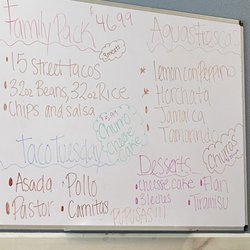 Family Pack $46.99
3 meats
• 15 street tacos
• 32oz Beans, 32oz Rice
• Chips and salsa
Aguas frescas
Lemon con Pepino
Horchata
Jamaica
Tamarindo
$3.99
Churro
cheese
cake
Churros
Taco Tuesday
• Asada • Pollo
• Pastor • Carnitas
PUPUSAS!!!
Desserts
• cheesecake • Flan
• 3 leches • Tiramisu